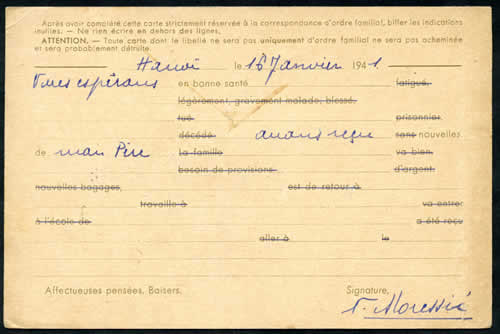 Après avoir complété cette carte strictement réservée à la correspondance d'ordre familial, biffer les indications
inutiles. — Ne rien écrire en dehors des lignes.
ATTENTION. — Toute carte dont le libellé ne sera pas uniquement d'ordre familial ne sera pas acheminée
et sera probablement détruite.
Hanoi le 16 Janvier 1941
Vous espérons en bonne santé fatigué.
légèrement, gravement malade, blessé.
tué prisonnier
décédé avons reçu sans nouvelles
de mon Père La famille va bien.
besoin de provisions d'argent.
nouvelles bagages, est de retour à
travaille à va entrer
à l'école de a été reçu
aller à le
Affectueuses pensées, Baisers. Signature,